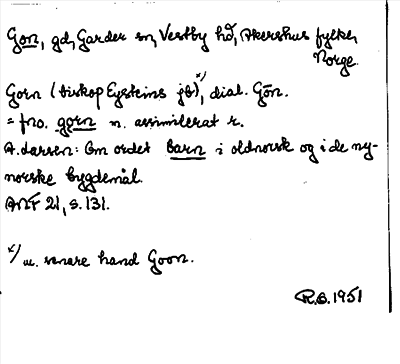 Gon, gd, Garder sn, Vestby hd, Akershus fylke,
Norge.
Gorn (biskop Eysteins jb) x), dial. Gōn.
= fno. gorn n. assimilerat r.
A. Larsen: Om ordet barn i oldnorsk og i de ny-
norske bygdemål.
ANF 21, s. 131.
x) m. senare hand Goon.
R.B. 1951